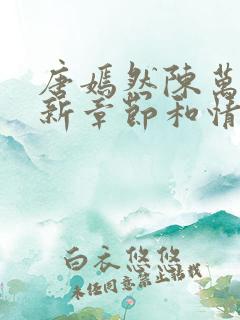 唐嫣然陈萬
新章節和情
白衣悠悠
未经同意禁止转载